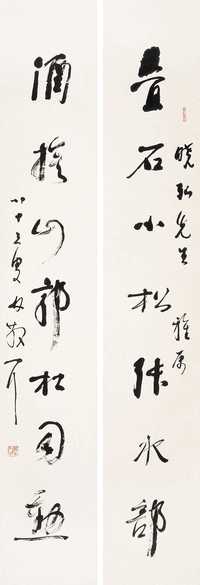 叠石小松张水部
晓弘先生 雅属
酒旗山郭杜司勋
八十叟林散耳